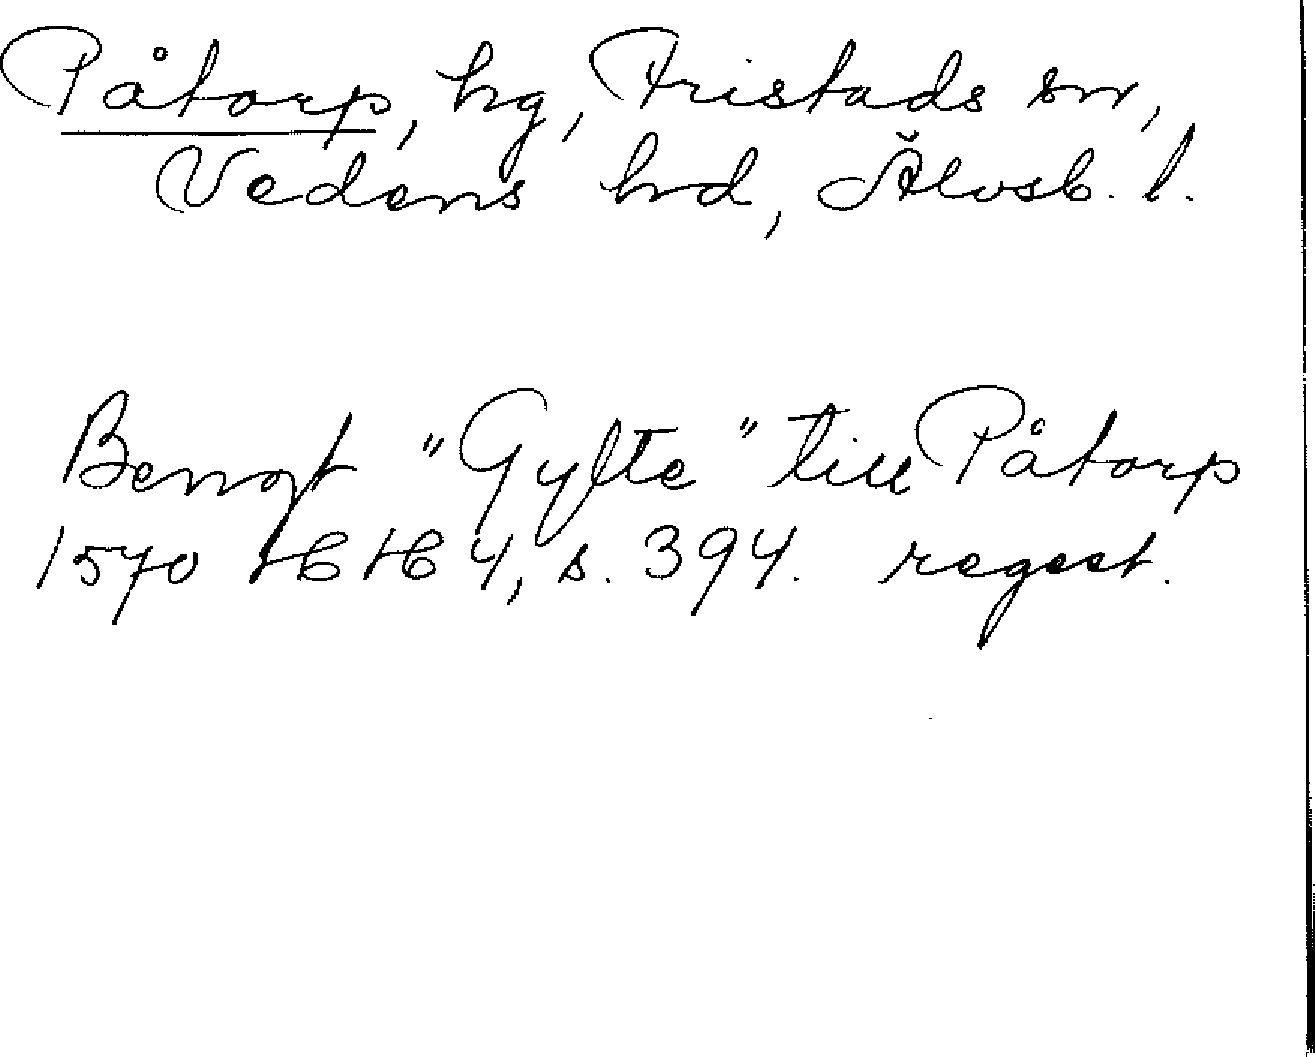 Påtorp, hg, Fristads sn,
Vedens hd, Älvsb. l.
Bengt "Gylte" till Påtorp
1570 HH 4, s. 394. regest.